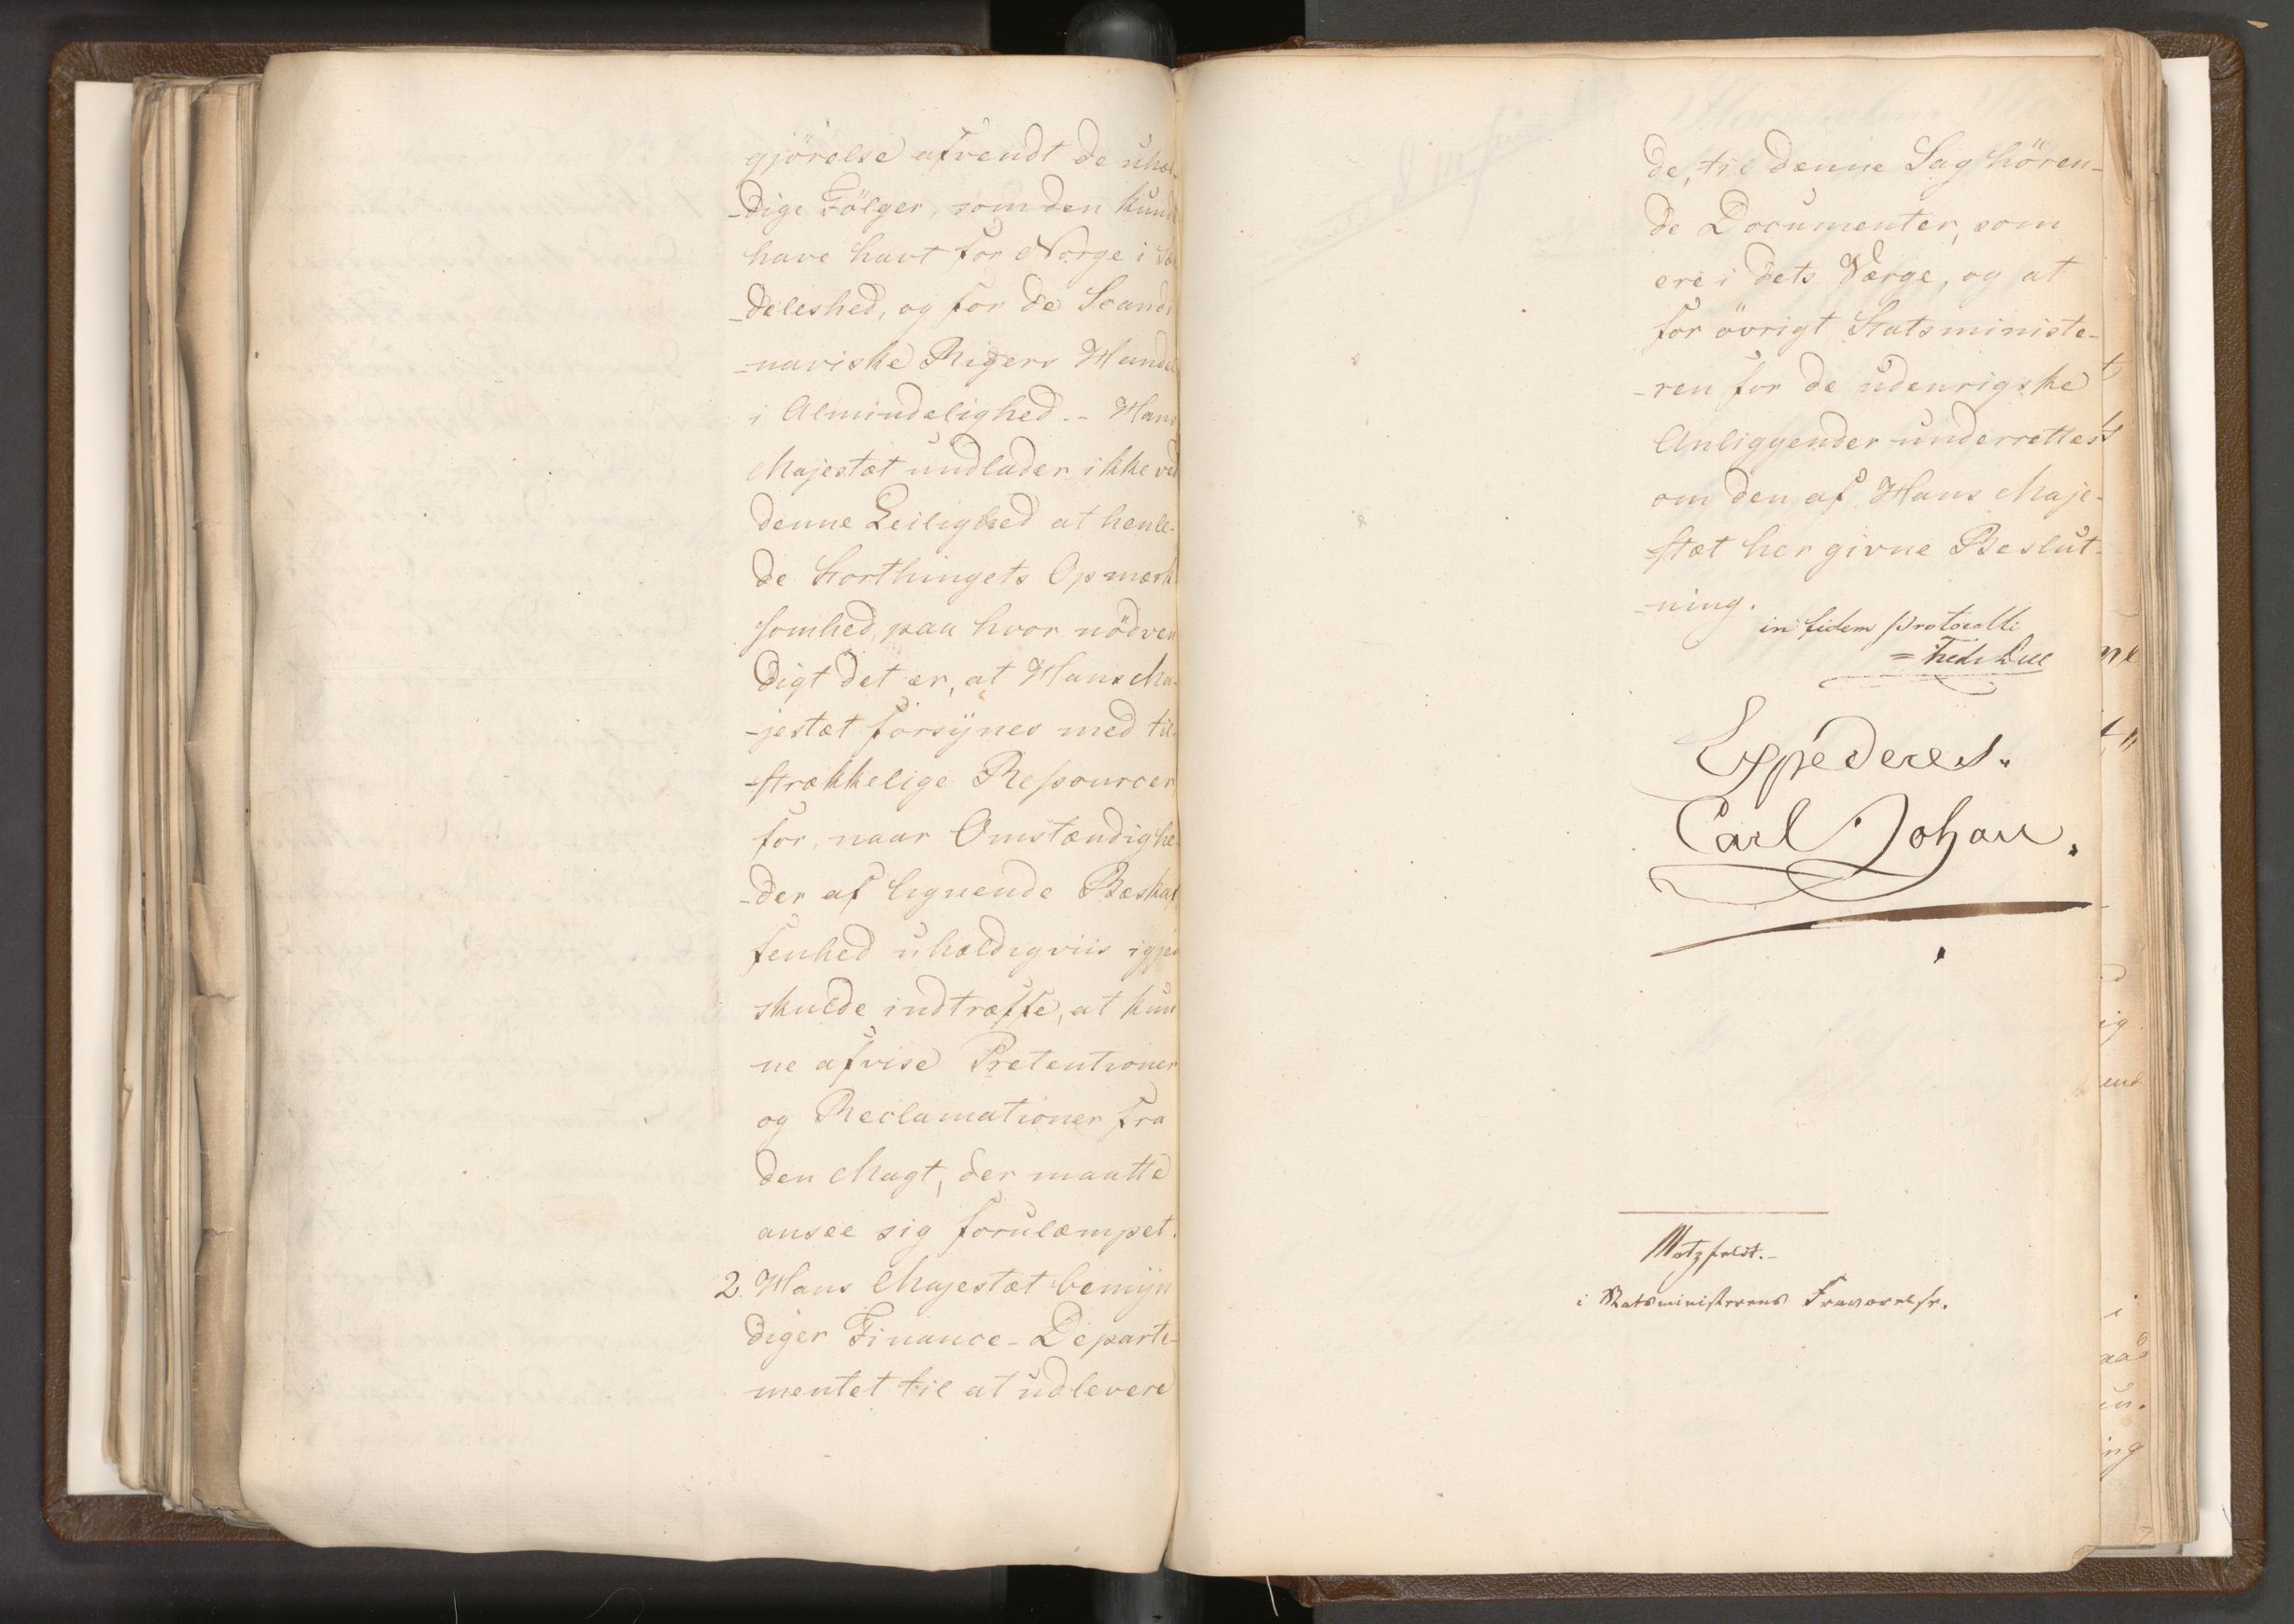 gjörelse afvendt de uhel-
-dige Fölger, som den kund
have havt for Norge i Sær
-deleshed, og for de Scandi
-naviske Rigers Handel
i Almindelighed. - Hans
Majestæt undlader ikke ved
denne Leilighed at henle-
de Storthingets Opmærk
somhed, paa hvor nödven
digt det er, at Hans Ma-
-jestæt forsÿnes med til-
-strækkelige Ressourcer
for, naar Omstændighe-
-der af lignende Beskaf
fenhed uheldigviis igjen
skulde indtræffe, at kun
ne afvise Pretentioner
og Reclamationer fra
den Magt, der maatte
ansee sig forulæmpet.
2. Hans Majestæt bemÿn
diger Finance-Departe-
mentet til at udlevere
de, til denne Sag hören-
de Documenter, som
ere i dets Værge, og at
for övrigt Statsministe-
-ren for de udenrigske
Anliggender underrettes
om den af Hans Maje-
-stæt her givne Beslut-
-ning.
in fidem protocolli
Fredr. Due
Expederes.
Carl Johan.
Motzfeldt.-
i Statsministerens Fraværelse.